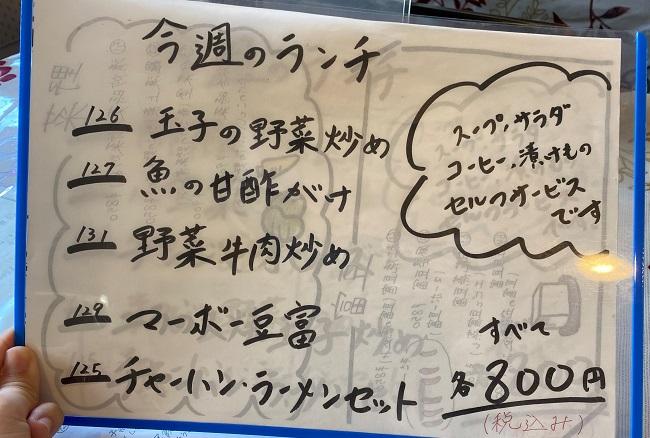 今週のランチ
126 玉子の野菜炒め
127 魚の甘酢がけ
131 野菜牛肉炒め
129 マーボー豆富
125 チャーハン・ラーメンセット
スープ、サラダ
コーヒー、漬けもの
セルフサービス
です
すべて
各800円
(税込み)